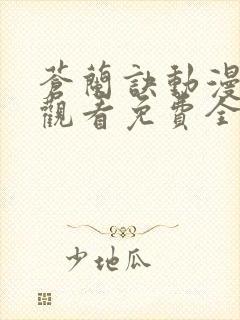 蒼蘭訣動漫
觀看免費全
少地瓜